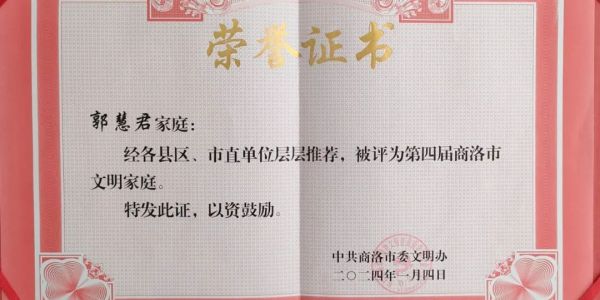 荣誉证书
郭慧君家庭：
经各县区、市直单位层层推荐，被评为第四届商洛市
文明家庭。
特发此证，以资鼓励。
中共商洛市委文明办
二〇二四年一月四日